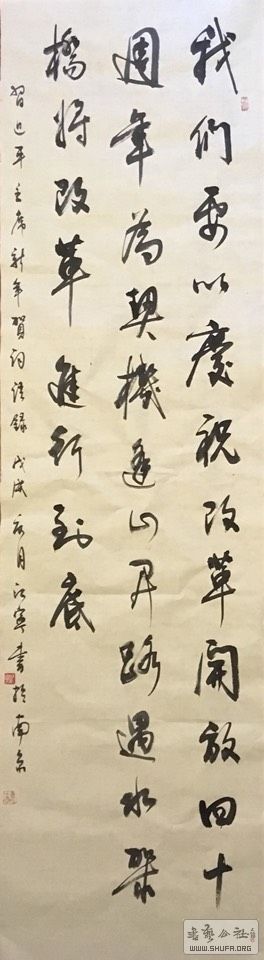 我們要以慶祝改革開放四十
週年為契機逢山開路遇水架
橋將改革進行到底
習近平主席新年賀詞語錄 戊戌 月 書於南京
書藝公社
WWW.SHUFA.ORG